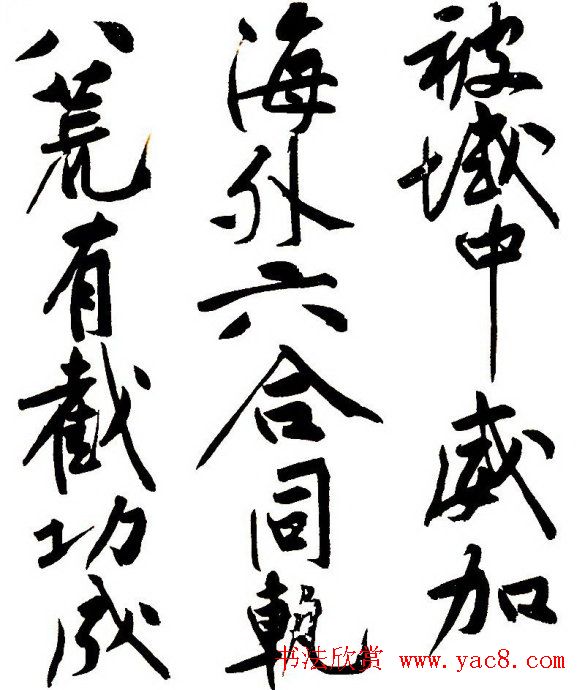 被域中威加
海外六合同軌
八荒有截功成
书法欣赏 www.yac8.com